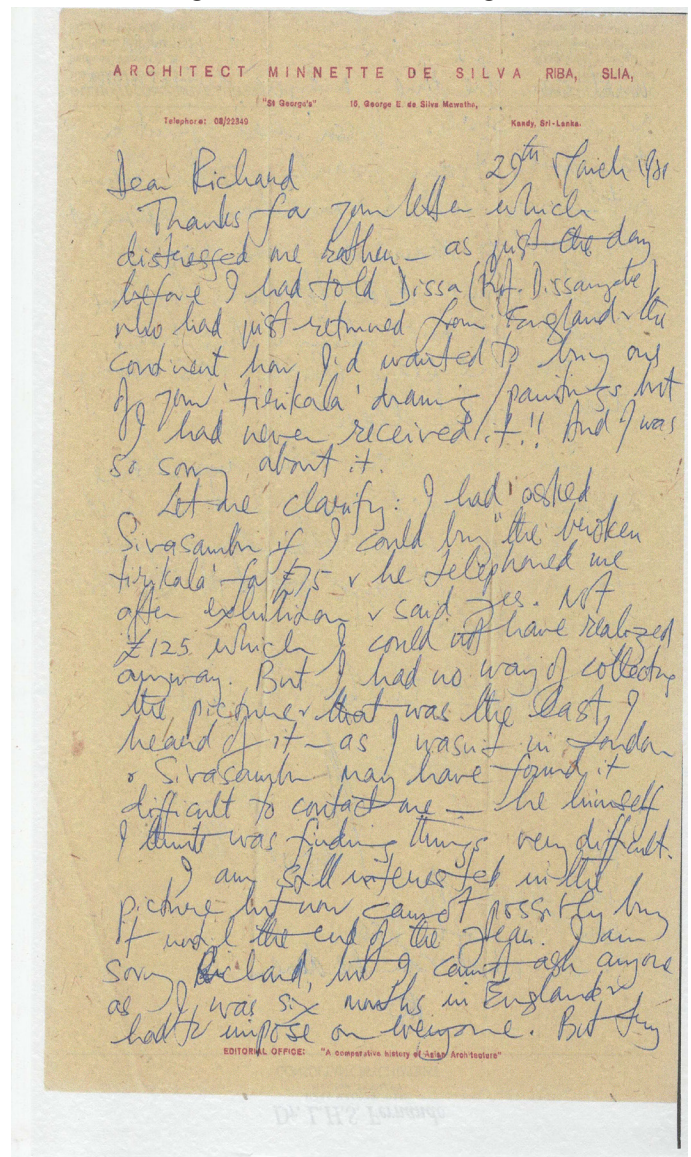 ARCHITECT MINNETTE DE SILVA RIBA, SLIA,
"St George's" 16, George E. de Silva Mawatha,
Telephone: 08/22349 Kandy, Sri-Lanka.
29th March
Dear Richard
Thanks for your letter which
distressed me rather – as just the day
before I had told Dissa (Prof. Dissanayake)
who had just returned from England & the
continent how I'd wanted to buy one
of your 'tirikala' drawing/paintings but
I had never received it!! And I was
so sorry about it.
Let me clarify: I had asked
Sivasambu if I could buy "the broken
tirikala' for £75 & he telephoned me
after exhibition & said yes. Not
£125 which I could not have realized
anyway. But I had no way of collecting
the picture & that was the last I
heard of it – as I wasn't in London
& Sivasambu may have found it
difficult to contact me – he himself
I think was finding things very difficult.
I am still interested in the
picture but now cannot possibly buy
it until the end of the year. I am
sorry Richard, but I can't ask anyone
as I was six months in England &
had to impose on everyone. But
EDITORIAL OFFICE: "A comparative history of Asian Architecture"